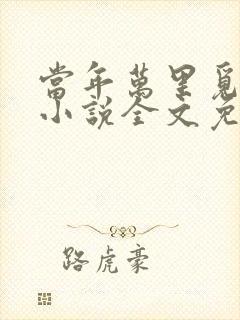 當年萬里覓
小說全文免
路虎豪